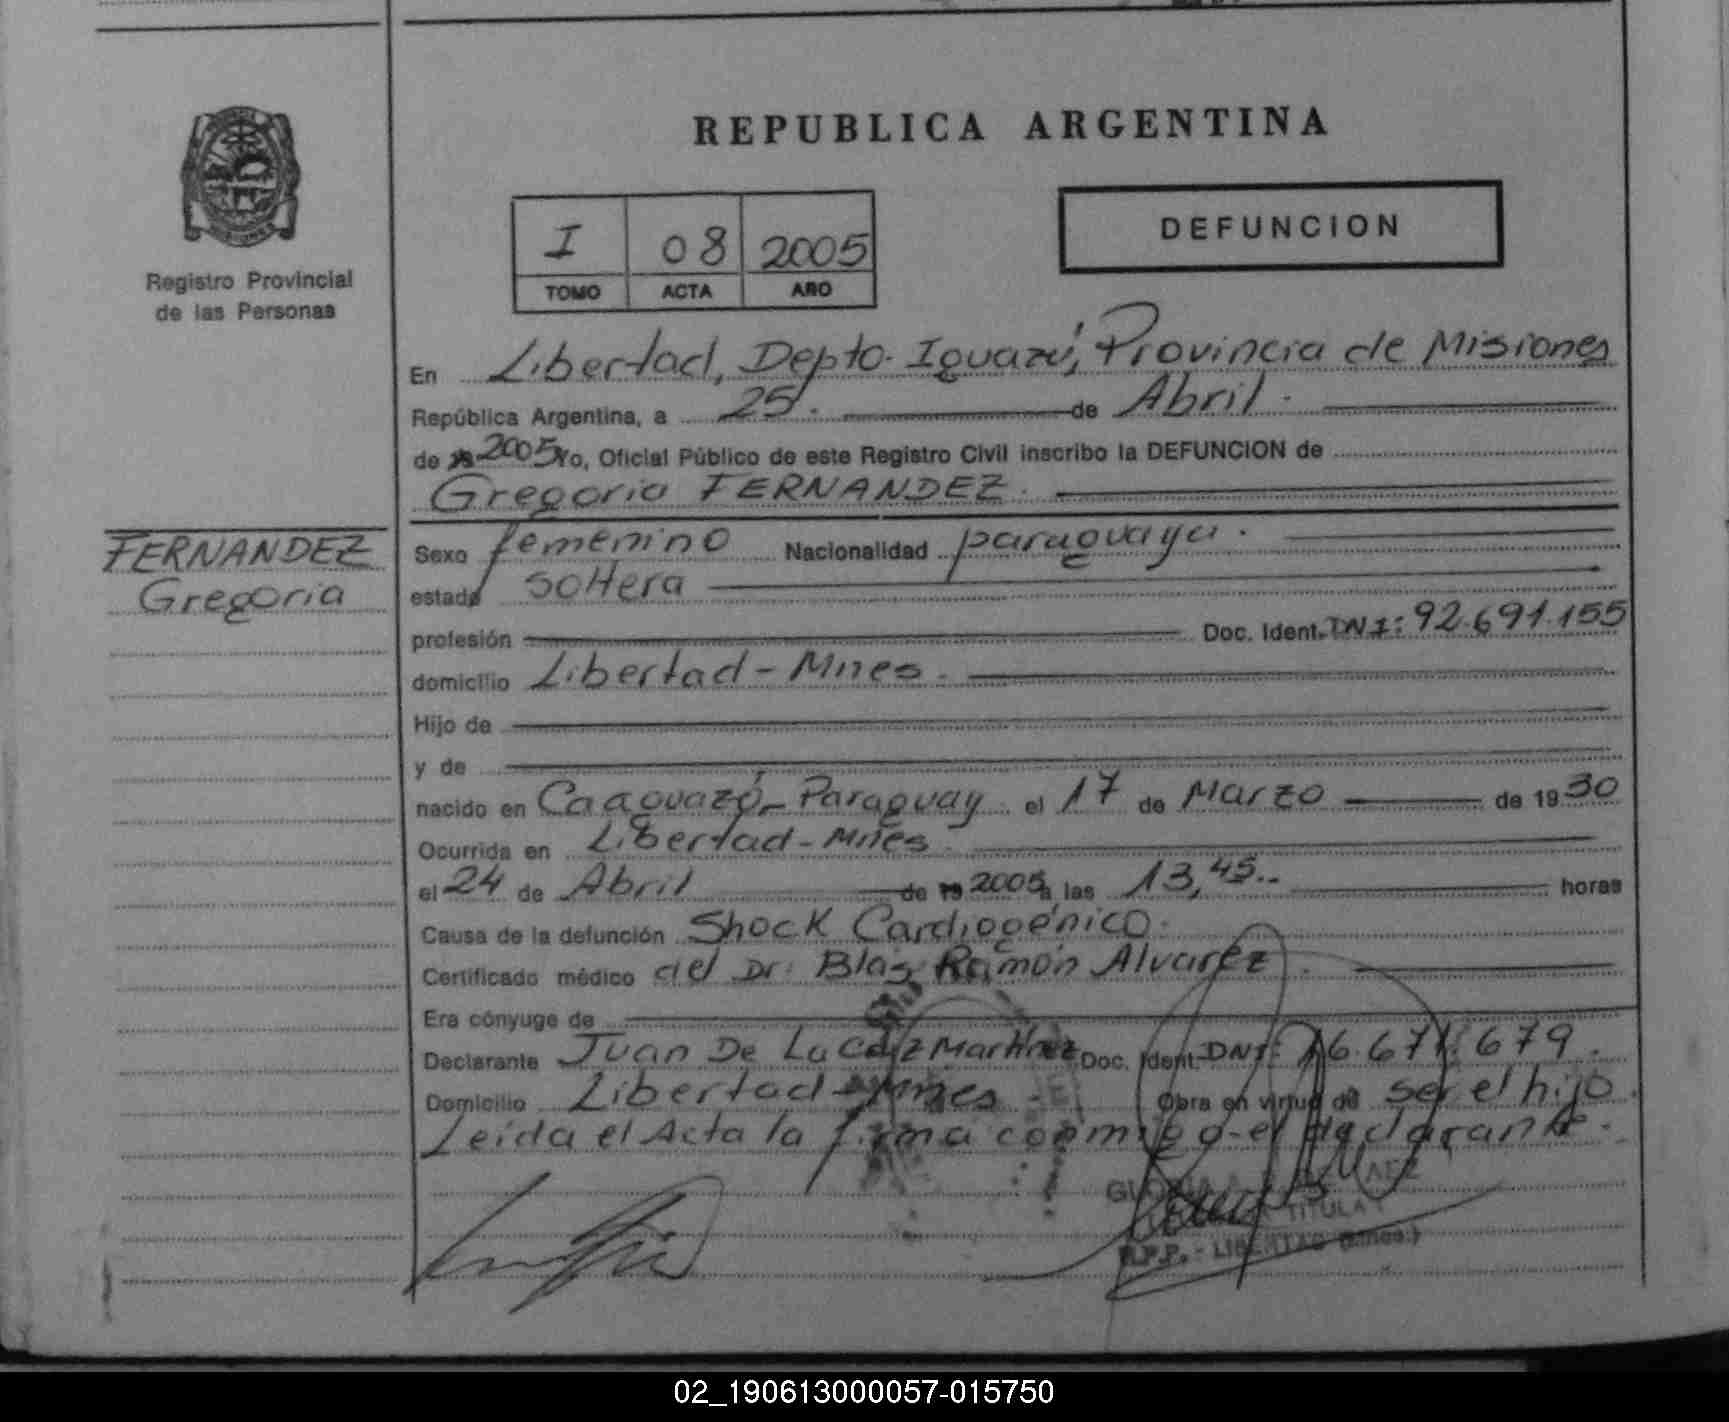 REPUBLICA ARGENTINA
I 08 2005
TOMO ACTA AÑO
DEFUNCION
Registro Provincial
de las Personas
En Libertad, Depto. Iguazú, Provincia de Misiones
República Argentina, a 25. de Abril.
de 2005 Yo, Oficial Público de este Registro Civil inscribo la DEFUNCION de
Gregoria FERNANDEZ.
FERNANDEZ
Gregoria
Sexo femenino Nacionalidad paraguaya.
estado soltera
profesión Doc. Ident. DNI: 92.691.155
domicilio Libertad - Mnes.
Hijo de
y de
nacido en Caaguazú - Paraguay el 17 de Marzo de 1930
Ocurrida en Libertad - Mnes.
el 24 de Abril de 19 2005 a las 13,45.- horas
Causa de la defunción Shock Cardiogénico.
Certificado médico del Dr. Blas Ramón Alvarez.
Era cónyuge de
Declarante Juan De La Cruz Martinez Doc. Ident. DNI: 16.671.679.
Domicilio Libertad - Mnes - Obra en virtud de ser el hijo.
Leída el Acta la firma conmigo el declarante.
TITULAR
R.P.P. - LIBERTAD (Mnes.)
02_190613000057-015750